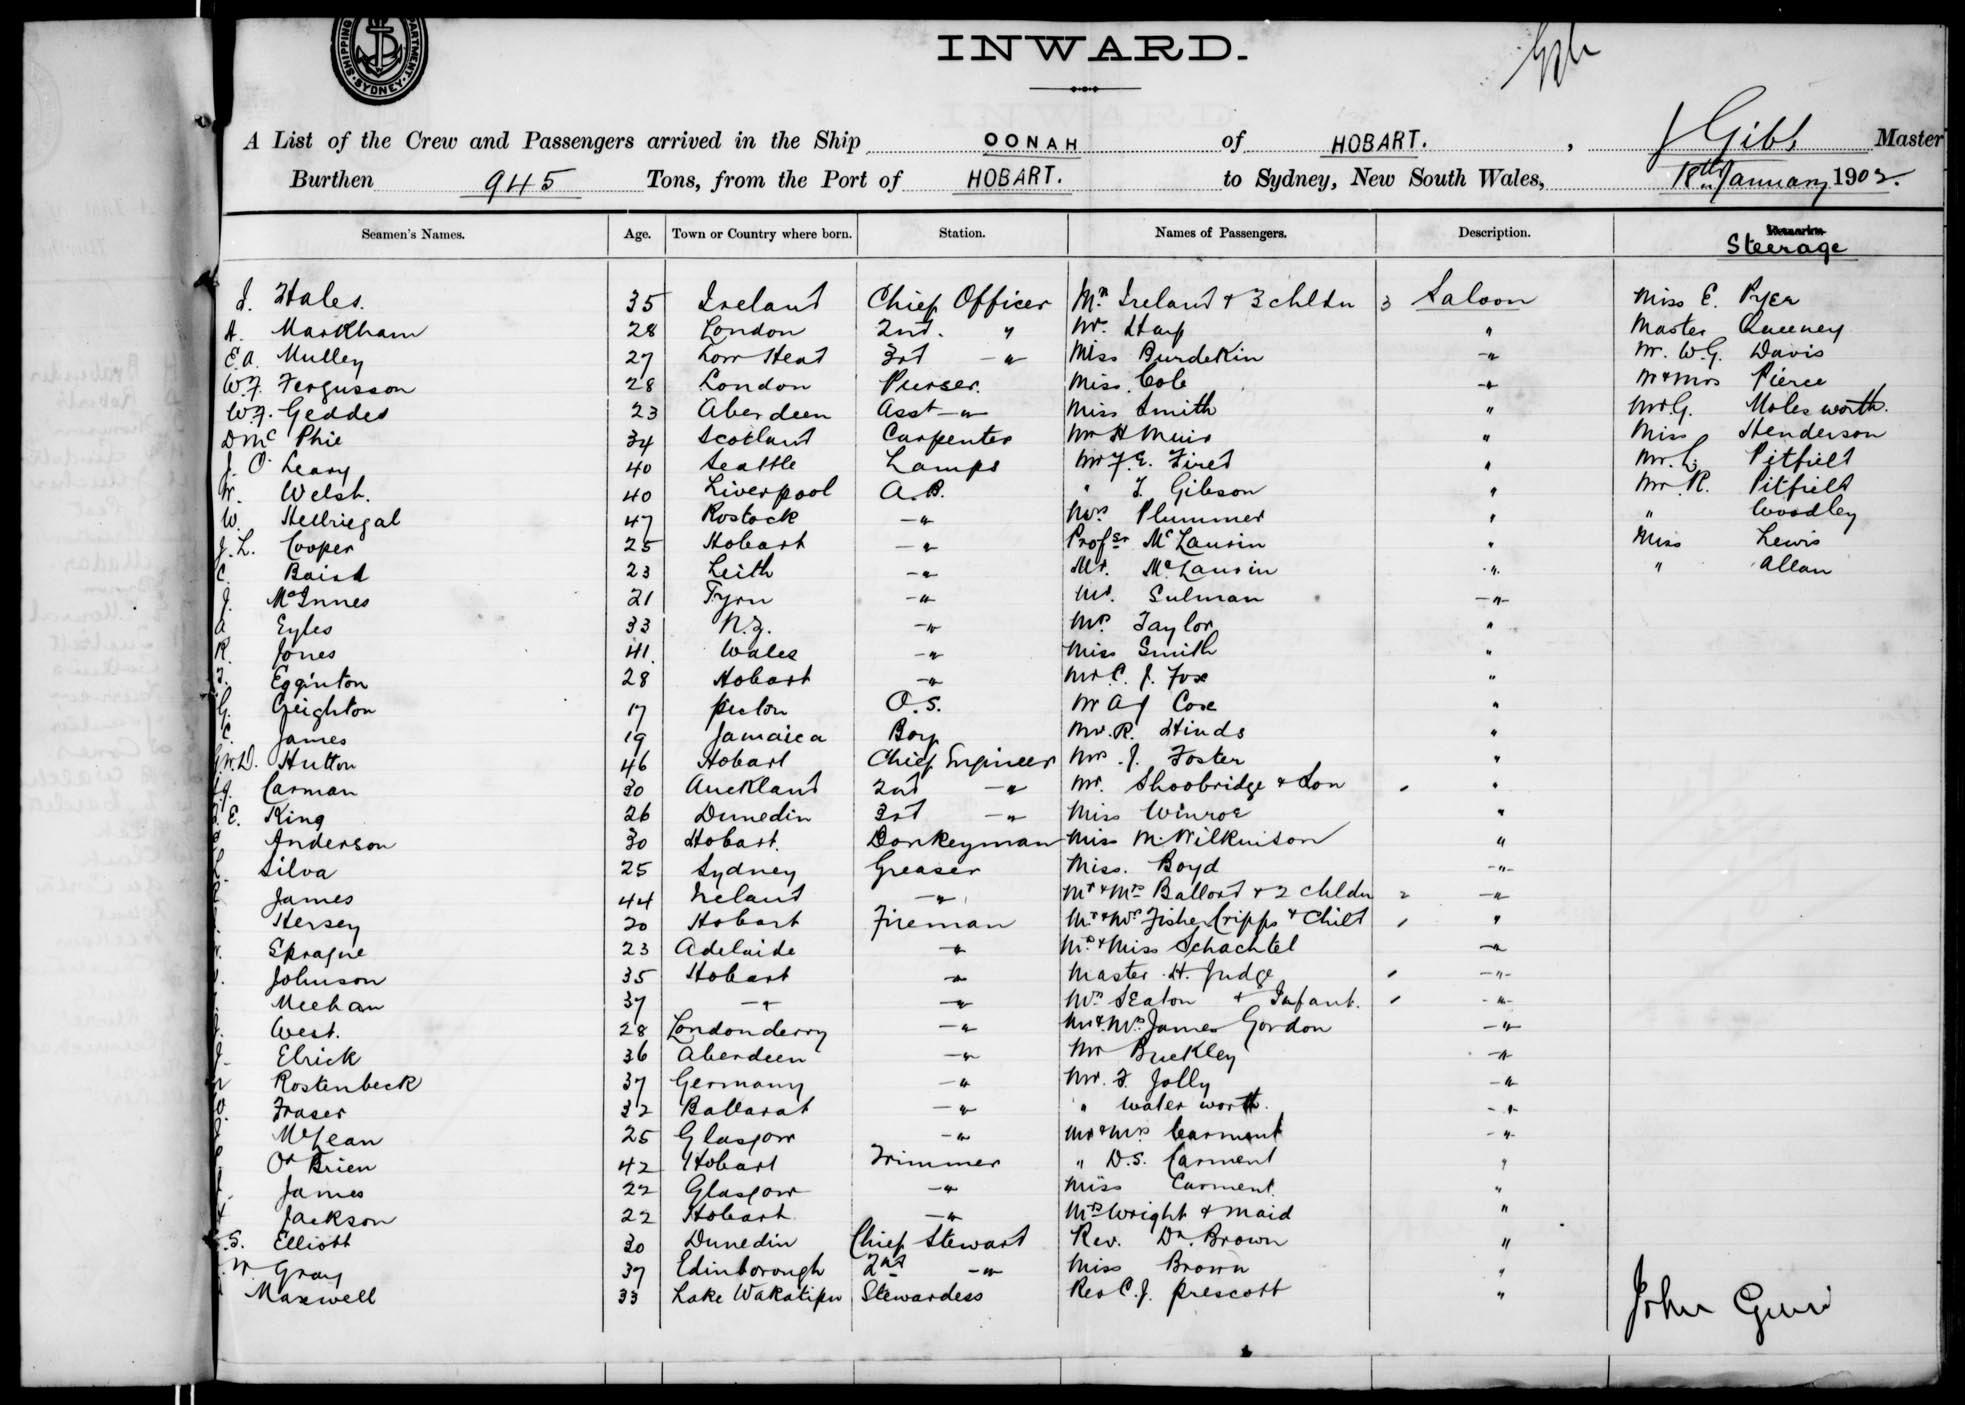 SHIPPING DEPARTMENT SYDNEY
INWARD.
A List of the Crew and Passengers arrived in the Ship OONAH of HOBART. , J Gibb Master
Burthen 945 Tons, from the Port of HOBART. to Sydney, New South Wales, 18th January 1902.
Seamen's Names. Age. Town or Country where born. Station. Names of Passengers. Description. Remarks Steerage
J. Hales. 35 Ireland Chief Officer Mrs Ireland & 3 chldn 3 Saloon Miss E. Pyer
A. Markham 28 London 2nd. " Mr. Harp " Master Queeney
E.A. Mulley 27 3rd " Miss Burdekin " Mr. W.G. Davis
W.F. Fergusson 28 London Purser. Miss. Cole " Mr & Mrs Pierce
W.F. Geddes 23 Aberdeen Asst " Miss Smith " Mr G. Molesworth.
D Mc Phie 34 Scotland Carpenter Mr H Muir " Miss Henderson
J. O' Leary 40 Seattle Lamps Mr F.E. " Mr. C. Pitfield
W. Welsh. 40 Liverpool A.B. " T. Gibson " Mr. R. Pitfield
W. Hellriegal 47 Rostock " Mrs Plummer " " Woodley
J.L. Cooper 25 Hobart " Profsr McLaurin " Miss Lewis
C. Baird 23 Leith " Mr. McLaurin " " Allan
J. McInnes 21 " Mr. Sulman "
A Eyles 33 N.Z. " Mrs Taylor "
R. Jones 41. Wales " Miss Smith "
T. Egginton 28 Hobart " Mr C. J. Fox "
G. Creighton 17 Picton O.S. Mr A J Cox "
C. James 19 Jamaica Boy Mr. R. Hinds "
W.D. Hutton 46 Hobart Chief Engineer Mrs. J. Foster "
Carman 30 Auckland 2nd " Mr. Shoobridge & Son "
E. King 26 Dunedin 3rd " Miss Winroe "
Anderson 30 Hobart. Donkeyman Miss M. Wilkinson "
Silva 25 Sydney Greaser Miss. Boyd "
James 44 Ireland " Mr & Mrs Ballord & 2 chldn 2 "
Hersey 20 Hobart Fireman Mr & Mrs Fisher Cripps & Child "
Sprague 23 Adelaide " Mrs & Miss Schachtel "
Johnson 35 Hobart " Master H. Judge "
Meehan 37 " " Mrs Seaton & Infant. "
West. 28 Londonderry " Mr & Mrs James Gordon "
Elrick 36 Aberdeen " Mr Buckley "
Rostenbeck 37 Germany " Mr. F. Jolly "
Fraser 32 Ballarat " " Waterworth. "
McLean 25 Glasgow " Mr & Mrs Carment "
O' Brien 42 Hobart Trimmer " D.S. Carment "
James 22 Glasgow " Miss Carment "
Jackson 22 Hobart " Mrs Wright & maid "
S. Elliott 30 Dunedin Chief Steward Rev. Dr. Brown "
Gray 37 Edinborough 2nd " Miss Brown "
Maxwell 33 Lake Wakatipu Stewardess Rev C. J. Prescott "
John